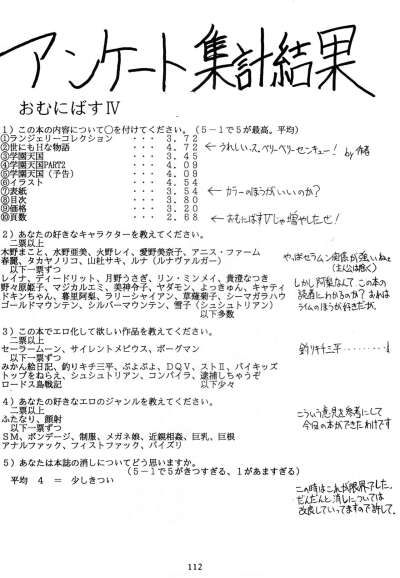 アンケート集計結果
おむにばすⅣ
1)この本の内容について○を付けてください。(5-1で5が最高。平均)
①ランジェリーコレクション ・・・ 3.72
②世にもHな物語 ・・・ 4.72
うれしいっス、ベリーベリーセンキュー! by 作者
③学園天国 ・・・ 3.45
④学園天国PART2 ・・・ 4.09
⑤学園天国(予告) ・・・ 4.09
⑥イラスト ・・・ 4.54
⑦表紙 ・・・ 3.54
カラーのほうがいいのか?
⑧目次 ・・・ 3.80
⑨価格 ・・・ 3.20
⑩頁数 ・・・ 2.68
おむにばすⅤじゃ増やしたぜ!
2)あなたの好きなキャラクターを教えてください。
二票以上
木野まこと、水野亜美、火野レイ、愛野美奈子、アニス・ファーム
春麗、タカヤノリコ、山吐サキ、ルナ(ルナヴァルガー)
以下一票ずつ
レイナ、ディードリット、月野うさぎ、リン・ミンメイ、貴澄なつき
野々原姫子、マジカルエミ、美神令子、ヤダモン、よっきゅん、キャティ
ドキンちゃん、暮里阿梨、ラリーシャイアン、草薙菊子、シーマガラハウ
ゴールドマウンテン、シルバーマウンテン、雪子(シュシュトリアン)
以下多数
やっぱセラムン関係が強いねェ
(主人公は抜く)
しかし阿梨なんて この本の
読者にわかるのか?おれは
ライムのほうが好きだが。
3)この本でエロ化して欲しい作品を教えてください。
二票以上
セーラームーン、サイレントメビウス、ボーグマン
以下一票ずつ
みかん絵日記、釣りキチ三平、ぷよぷよ、DQⅤ、ストⅡ、バイキッズ
トップをねらえ、シュシュトリアン、コンパイラ、逮捕しちゃうぞ
ロードス島戦記 以下少々
釣りキチ三平・・・・・・・・!
4)あなたの好きなエロのジャンルを教えてください。
二票以上
ふたなり、顔射
以下一票ずつ
SM、ボンデージ、制服、メガネ娘、近親相姦、巨乳、巨根
アナルファック、フィストファック、パイズリ
こういう意見を参考にして
今回の本ができたわけです
5)あなたは本誌の消しについてどう思いますか。
(5-1で5がきつすぎる、1があますぎる)
平均 4 = 少しきつい
この時はこれが限界でした。
だんだんと消しについては
改良していってますので許して。
112